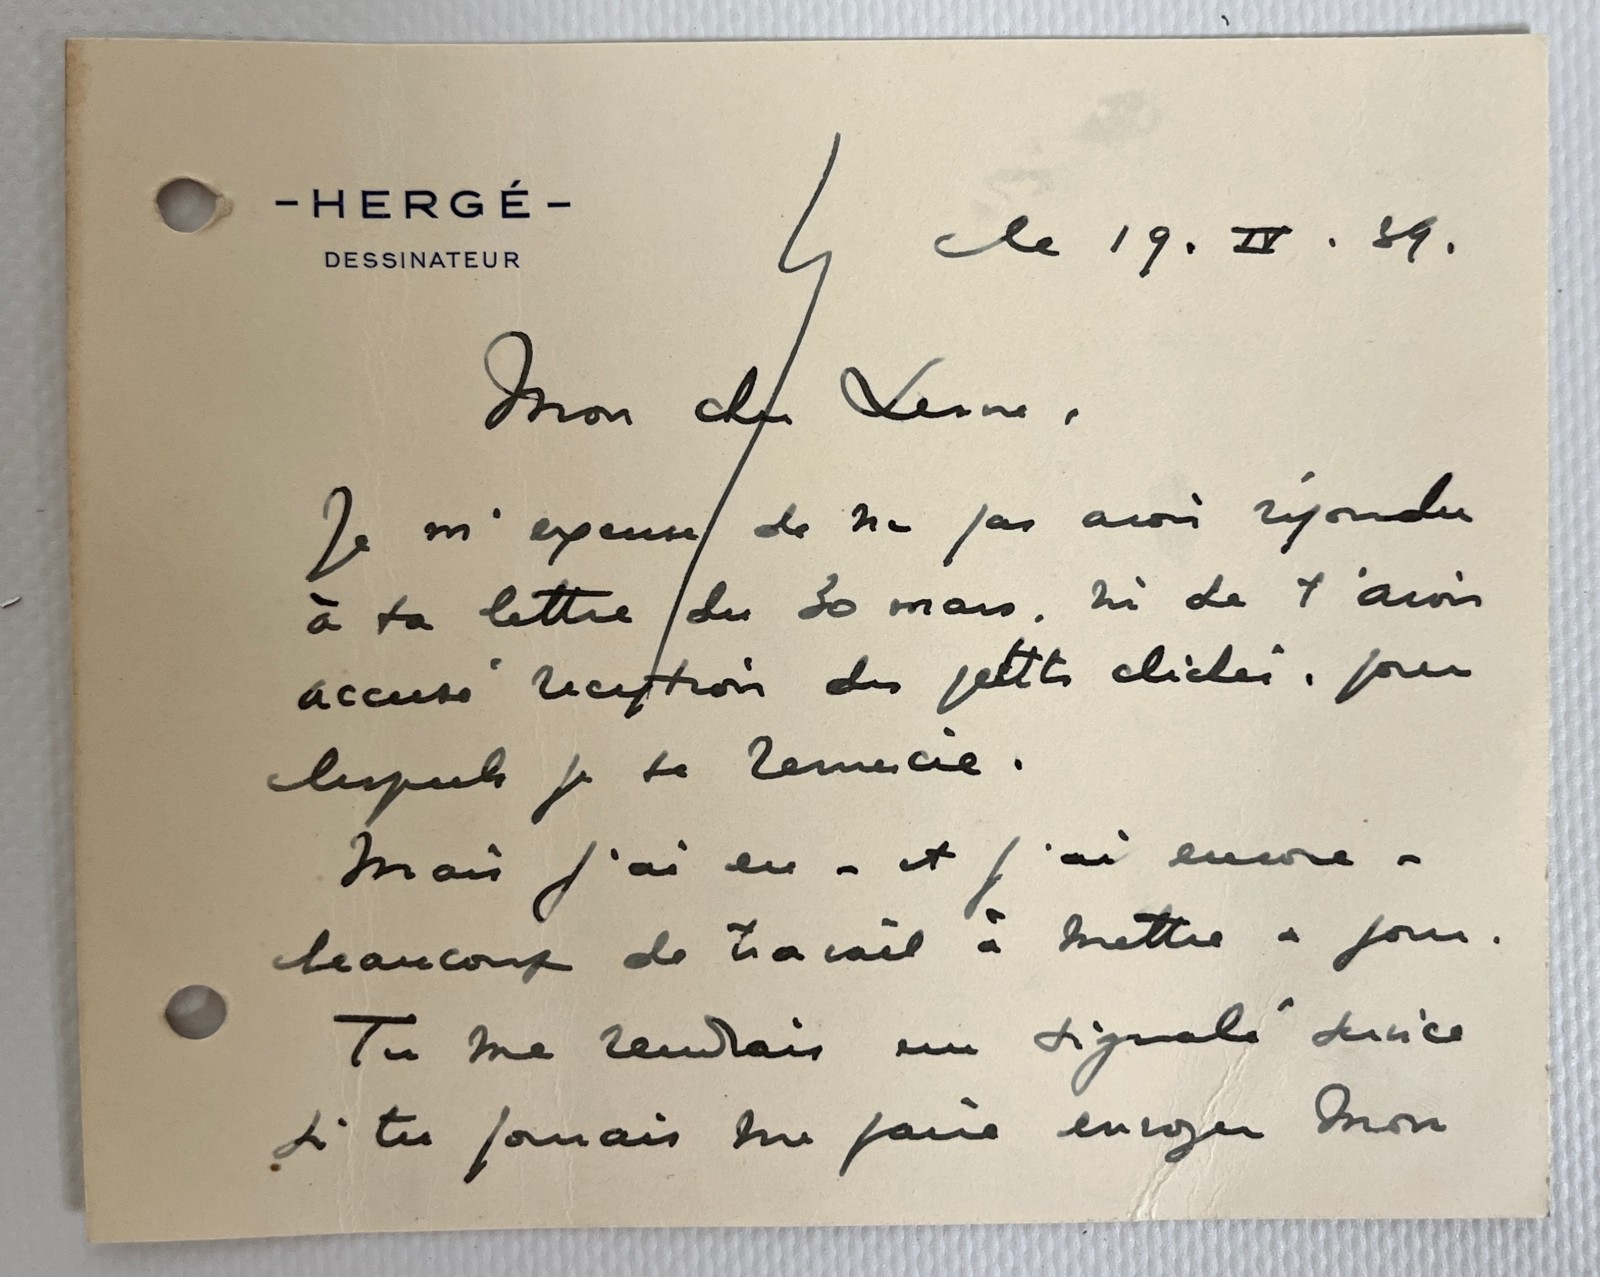 -HERGÉ-
DESSINATEUR
le 19. IV. 39.
Mon cher Lesne,
Je m'excuse de ne pas avoir répondu
à ta lettre du 30 mars, ni de t'avoir
accusé réception des petits clichés, pour
lesquels je te remercie.
Mais j'ai eu - et j'ai encore -
beaucoup de travail à mettre à jour.
Tu me rendrais un signalé service
si tu pouvais me faire envoyer mon